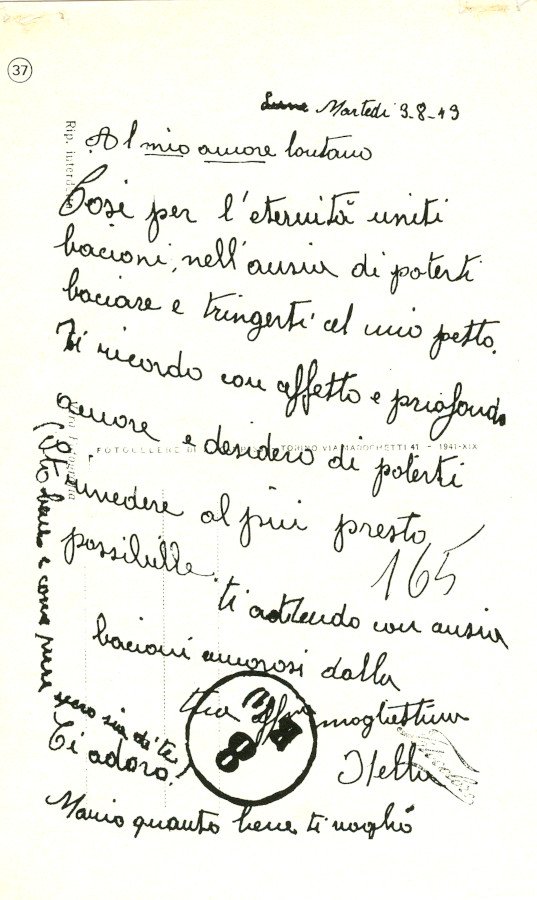 37
Martedi 9-8-49
Al mio amore lontano
Così per l'eternità uniti
bacioni, nell'ansia di poterti
baciare e tringerti al mio petto.
Ti ricordo con affetto e priofondo
amore e desidero di poterti
rivedere al più presto
possibille.
165
ti attendo con ansia
bacioni amorosi dalla
tua aff.ma mogliettina
Ti adoro!
Mario quanto bene ti voglio
(Sto bene e come pure
spero sia di te
Rip. interdetta
Vera Fotografia
TORINO VIA MAROCHETTI 41 - 1941-XIX
88